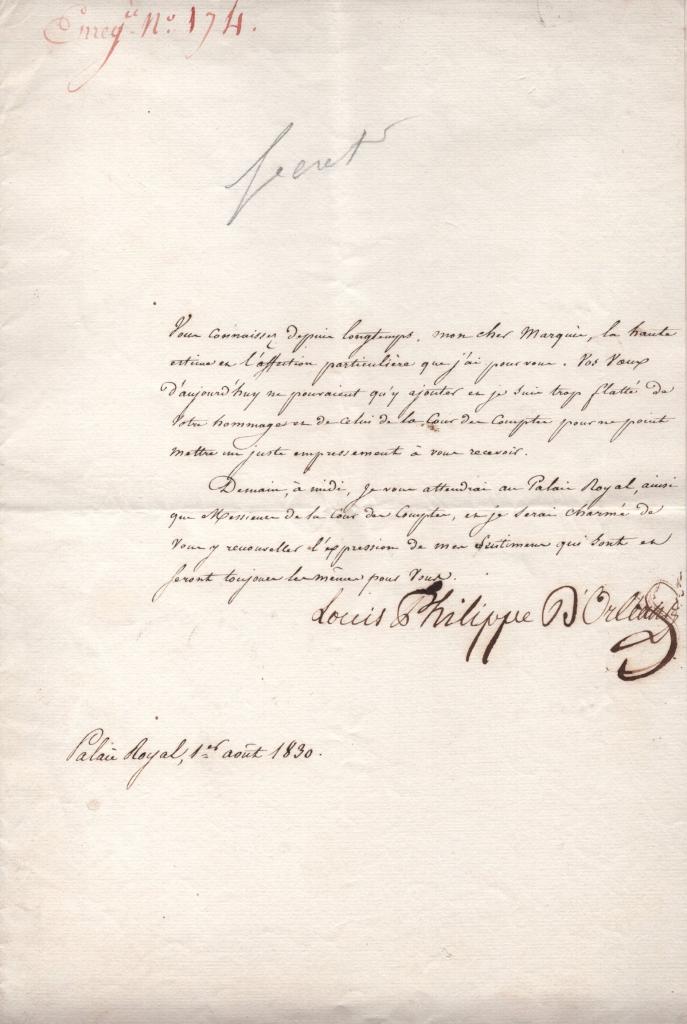 Enreg.ée N.° 174.
Secret
Vous connaissez depuis longtemps, mon cher Marquis, la haute
estime et l'affection particulière que j'ai pour vous. Vos Vœux
D'aujourd'huy ne pouvaient qu'y ajouter et je suis trop flatté de
Votre hommage et de celui de la Cour des Comptes pour ne point
mettre un juste empressement à vous recevoir.
Demain, à midi, je vous attendrai au Palais Royal, ainsi
que Messieurs de la Cour des Comptes, et je serai charmé de
Vous y renouveller l'expression de mes Sentimens qui sont et
seront toujours les mêmes pour Vous.
Louis Philippe D'Orléans
Palais Royal, 1.er août 1830.